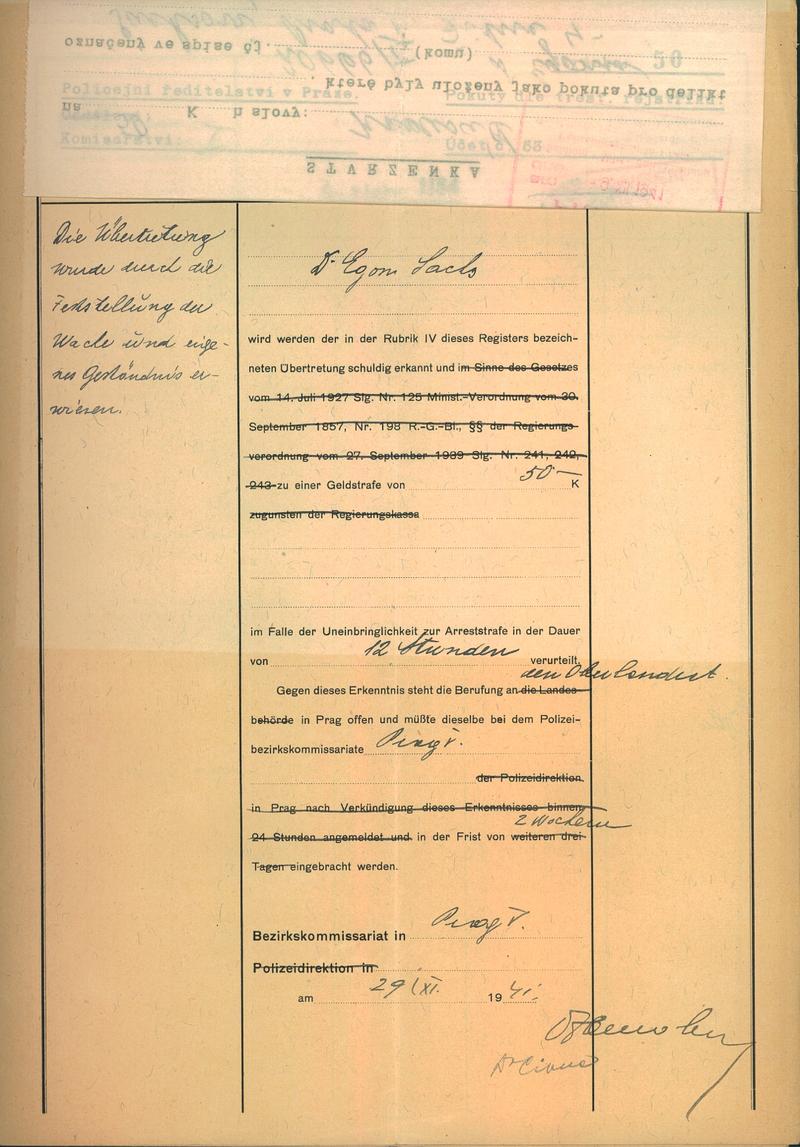 označený ve spise čj.
(komu)
50
které byly uloženy jako pokuta pro delikt
Policejní ředitelství v Praze.
Pokuty dle trest. rejstříku.
na K slovy:
Komisařství:
Účet č. 63
STVRZENKA
Die Übertretung
wurde durch die
Feststellung der
Wache und eige-
nes Geständnis er-
wiesen.
Dr Egon Sachs
wird werden der in der Rubrik IV dieses Registers bezeich-
neten Übertretung schuldig erkannt und im Sinne des Gesetzes
vom 14. Juli 1927 Slg. Nr. 125 Minist.-Verordnung vom 30.
September 1857, Nr. 198 R.-G.-Bl., §§ der Regierungs-
verordnung vom 27. September 1939 Slg. Nr. 241, 242,
243 zu einer Geldstrafe von 50 — K
zugunsten der Regierungskassa
im Falle der Uneinbringlichkeit zur Arreststrafe in der Dauer
von 12 Stunden verurteilt.
den Oberlandrat.
Gegen dieses Erkenntnis steht die Berufung an die Landes-
behörde in Prag offen und müßte dieselbe bei dem Polizei-
bezirkskommissariate Prag V.
der Polizeidirektion
in Prag nach Verkündigung dieses Erkenntnisses binnen
2 Wochen
24 Stunden angemeldet und in der Frist von weiteren drei
Tagen eingebracht werden.
Bezirkskommissariat in Prag V.
Polizeidirektion in
am 29/XI. 1941.